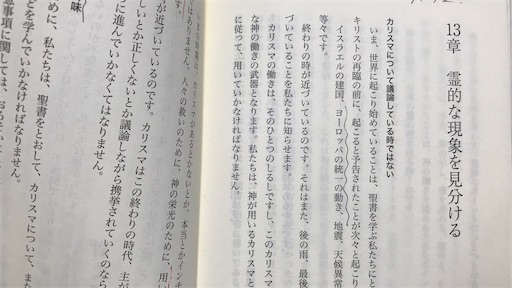 13章 霊的な現象を見分ける
カリスマについて議論している時ではない
いま、世界に起こり始めていることは、聖書を学ぶ私たちにと
キリストの再臨の前に、起こると予告されたことが次々と起こり
イスラエルの建国、ヨーロッパの統一の動き、地震、天候異常
等々です。
終わりの時が近づいているのです。それはまた、後の雨、最後
づいていることを私たちに知らせます。
カリスマの働きは、そのひとつのしるしですし、このカリスマ
な神の働きの武器となります。私たちは、神が用いるカリスマと
に従って、用いていかなければなりません。
カリスマがあるとかないとか、本当とかインチ
はありません。人々の救いのために、神の栄光のために、用い
が近づいているのです。カリスマはこの終わりの時代、主が
しいとか正しくないとか議論しながら携挙されていくのなら
に進んでいかなくてはなりません。
味
めに、私たちは、聖書をとおして、カリスマについて、また
どを学んでいかなければなりません。
意事項に関しては、